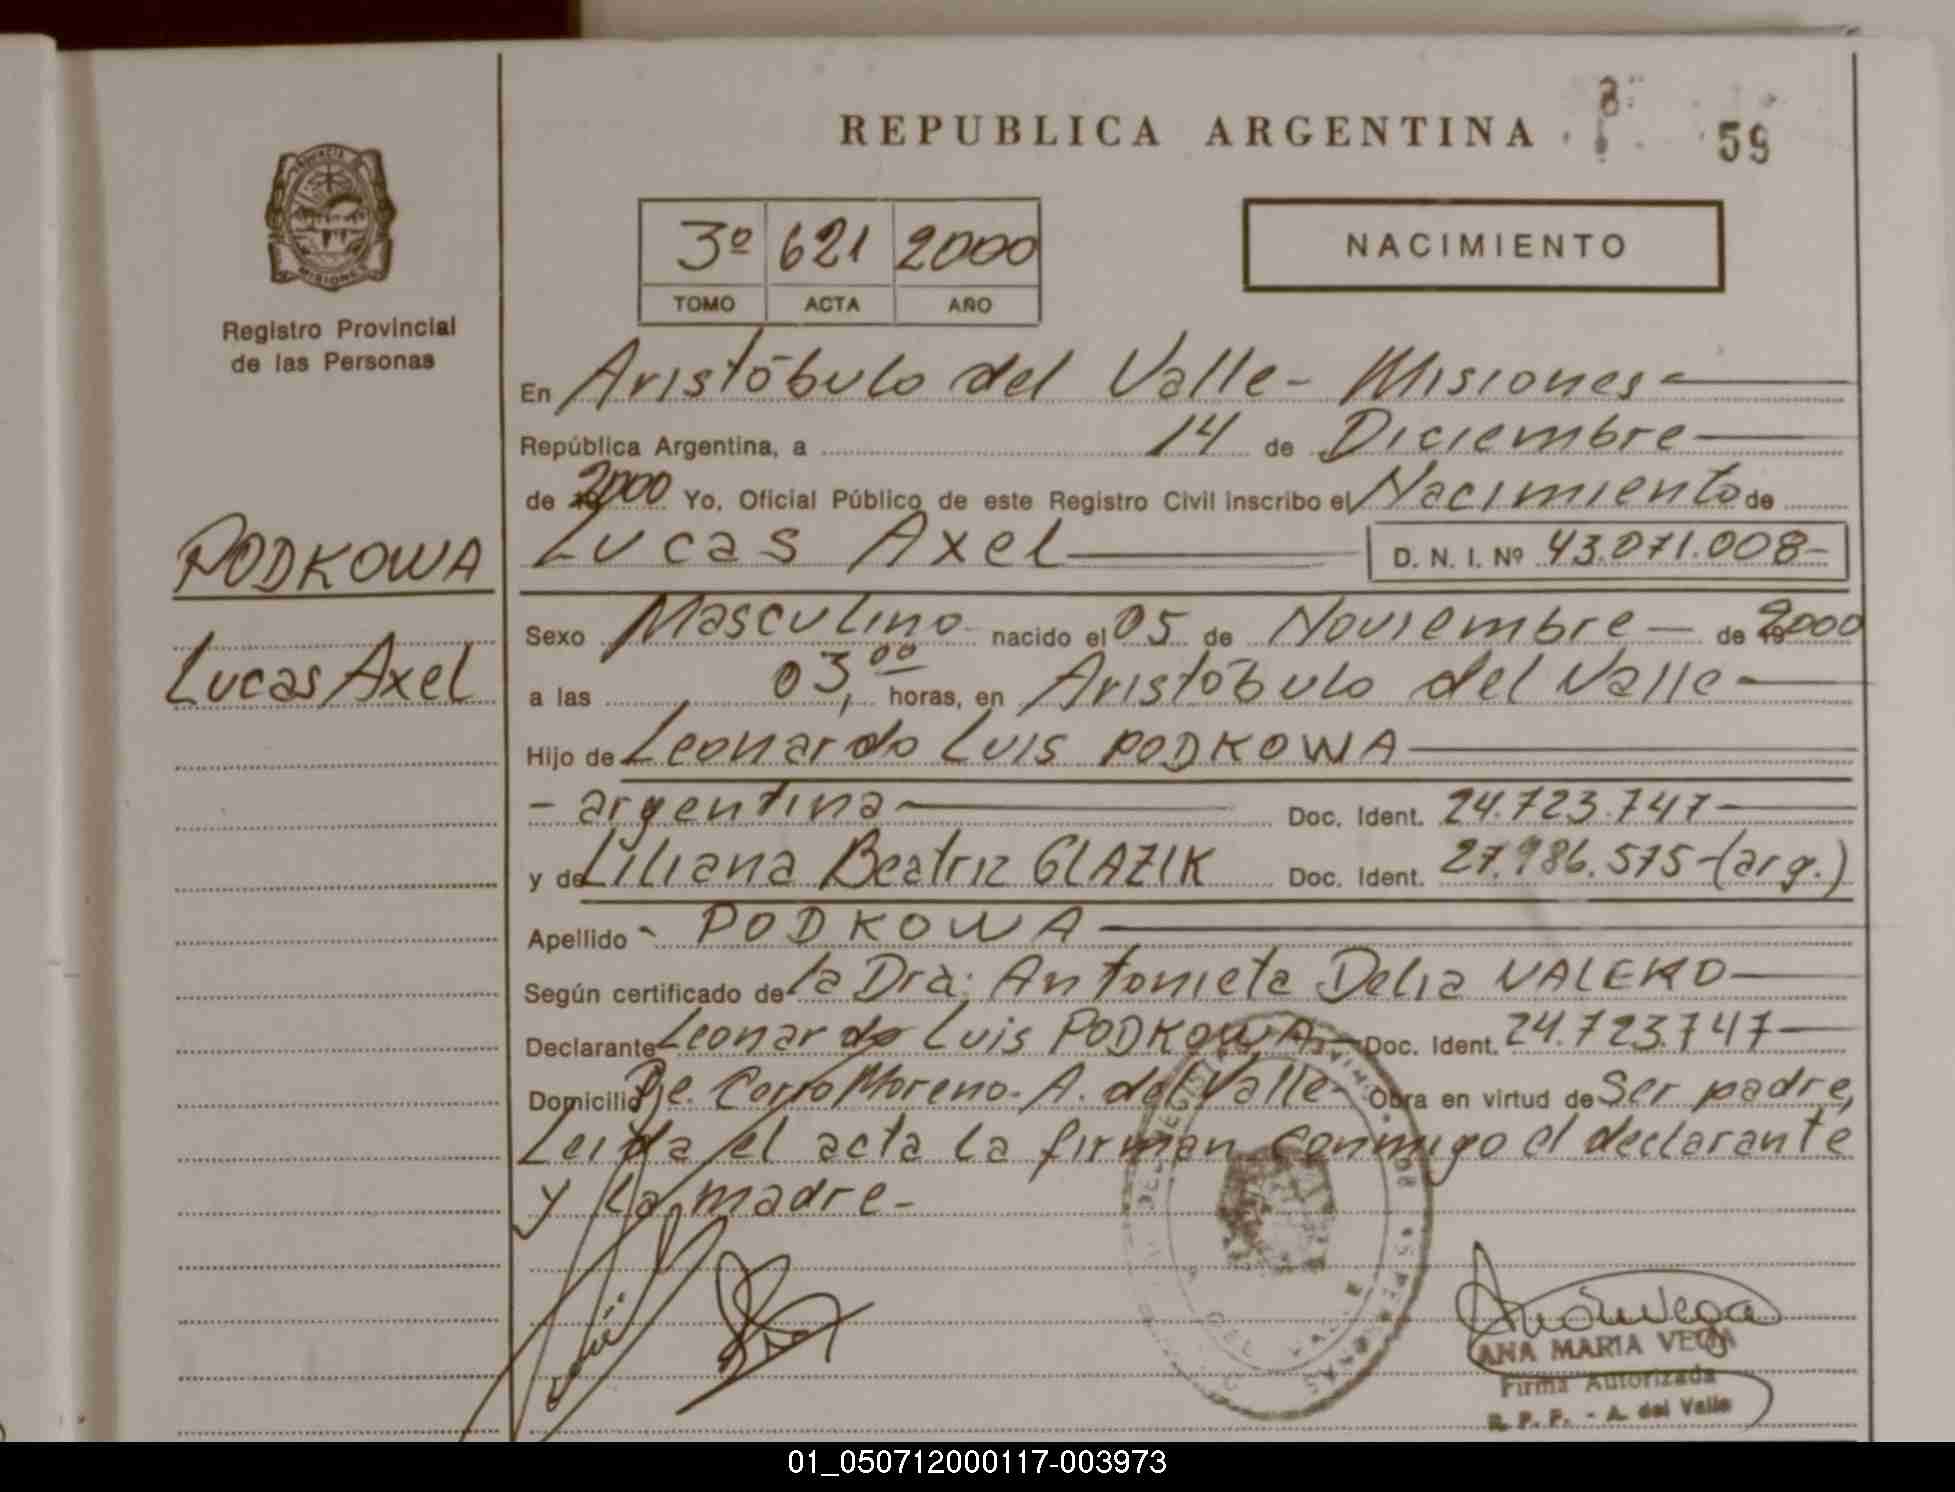 REPUBLICA ARGENTINA
59
PROVINCIA DE
MISIONES
Registro Provincial
de las Personas
3º 621 2000
TOMO ACTA AÑO
NACIMIENTO
En Aristóbulo del Valle - Misiones -
República Argentina, a 14 de Diciembre
de 2000 Yo, Oficial Público de este Registro Civil inscribo el Nacimiento de
PODKOWA
Lucas Axel D. N. I. Nº 43.071.008-
Lucas Axel
Sexo Masculino nacido el 05 de Noviembre - de 2000
a las 03,00 horas, en Aristóbulo del Valle -
Hijo de Leonardo Luis PODKOWA
- argentina - Doc. Ident. 24.723.747
y de Liliana Beatriz GLAZIK Doc. Ident. 27.986.575-(arg.)
Apellido - PODKOWA
Según certificado de la Dra. Antonieta Delia
Declarante Leonardo Luis PODKOWA - Doc. Ident. 24.723.747
Domicilio Pje. Corro Moreno. A. del Valle - Obra en virtud de Ser padre,
Leida el acta la firman conmigo el declarante
y la madre -
DEL VALLE
ANA MARIA VEGA
Firma Autorizada
R. P. P. - A. del Valle
01_050712000117-003973